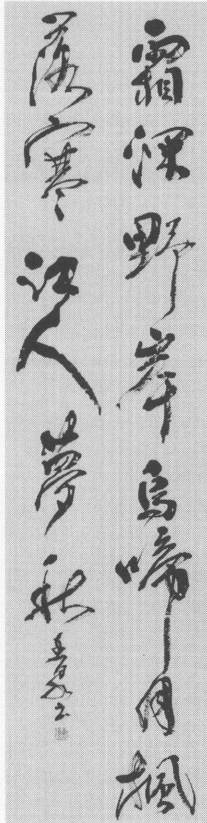 霜深野岸烏啼月楓
落寒江人夢秋